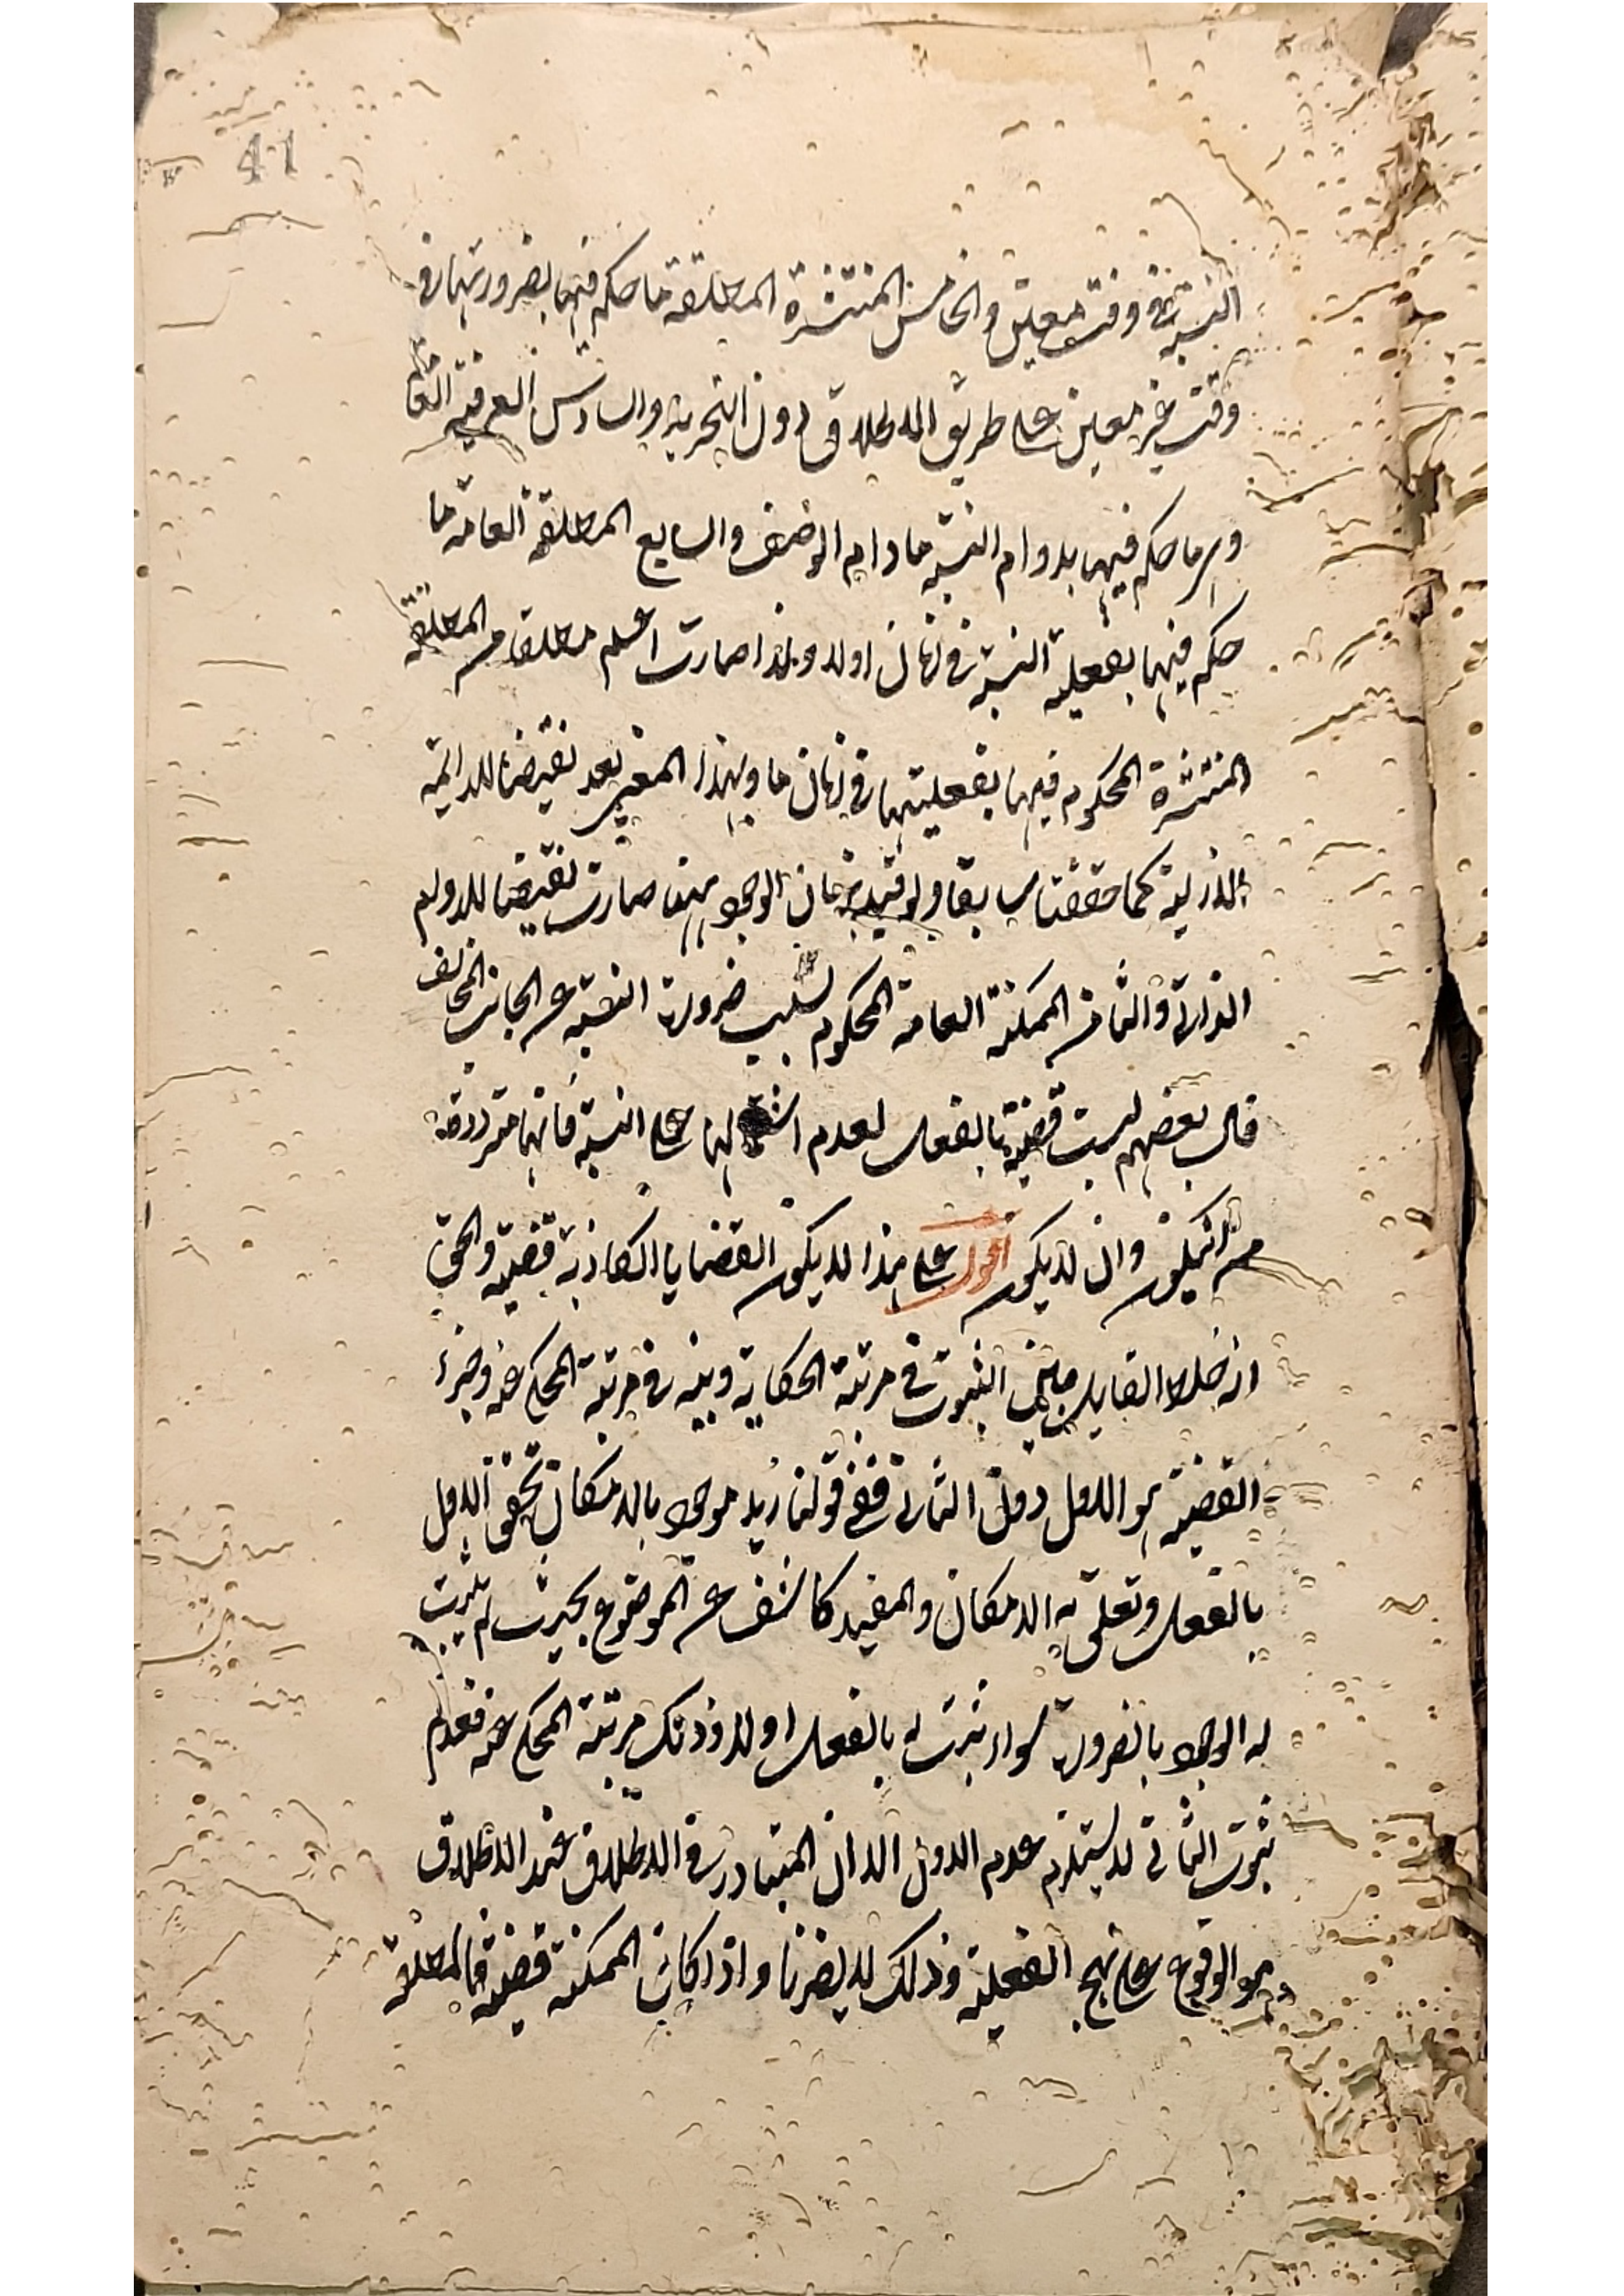 41
النسبة في وقت معين والخامس المنتشرة المطلقة ما حكم فيها بضرورتها في
وقت غير معين على طريق الاطلاق دون التحرية والسادس العرفية العامة
وهي ما حكم فيها بدوام النسبة ما دام الوصف والسابع المطلقة العامة ما
حكم فيها بفعلية النسبة في زمان اولا ولهذا صارت اعم مطلقا من المطلقة
المنتشرة المحكوم فيها بفعليتها في زمان ما وبهذا المعنى يعد نقيضا للدائمة
الازلية كما حققنا سابقا ولو قيد بزمان الوجود منها صارت نقيضا للدوام
الذاتي والثامن الممكنة العامة المحكوم بسلب ضرورة النسبة عن الجانب المخالف
قال بعضهم ليست قضية بالفعل لعدم اشتمالها على النسبة فانها مترددة
من ان يكون وان لا يكون اقول على هذا لا يكون القضايا الكاذبة قضية والحق
انه خلط القايل بين الثبوت في مرتبة الحكاية وبينه في مرتبة المحكي عنه وجزء
القضية هو الاول دون الثاني ففي قولنا زيد موجود بالامكان تحقق الاول
بالفعل وتعلق به الامكان والمفيد كاشف عن الموضوع بحيث لم يثبت
له الوجود بالضرورة سواء ثبت له بالفعل اولا وذلك مرتبة المحكي عنه فعدم
ثبوت الثاني لا يستلزم عدم الاول الا ان المتبادر في الاطلاق عند الاطلاق
هو الوقوع على نهج الفعلية وذلك لا يضرنا واذا كان الممكنة قضية فالمطلقة